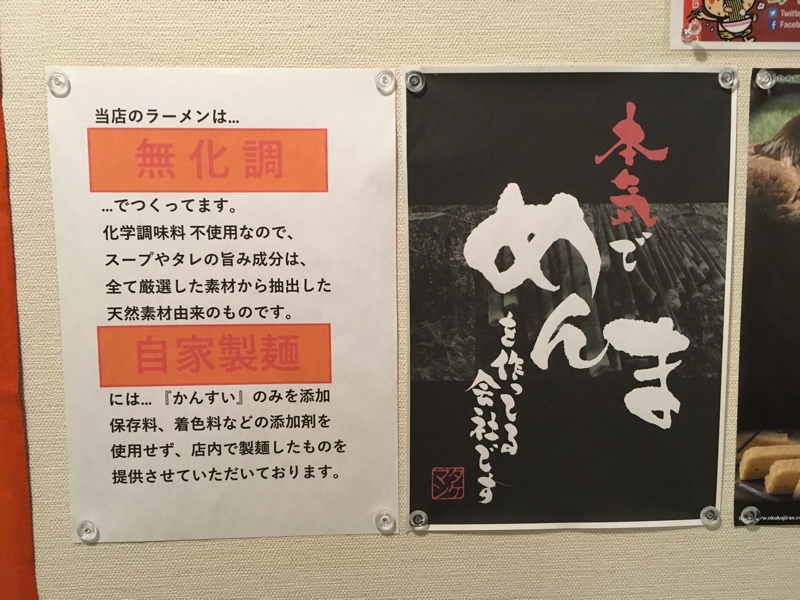 当店のラーメンは...
無化調
...でつくってます。
化学調味料 不使用なので、
スープやタレの旨み成分は、
全て厳選した素材から抽出した
天然素材由来のものです。
自家製麺
には...『かんすい』のみを添加
保存料、着色料などの添加剤を
使用せず、店内で製麺したものを
提供させていただいております。
本気で
めんま
を作ってる
会社です
タケマン
Twitte
Faceb